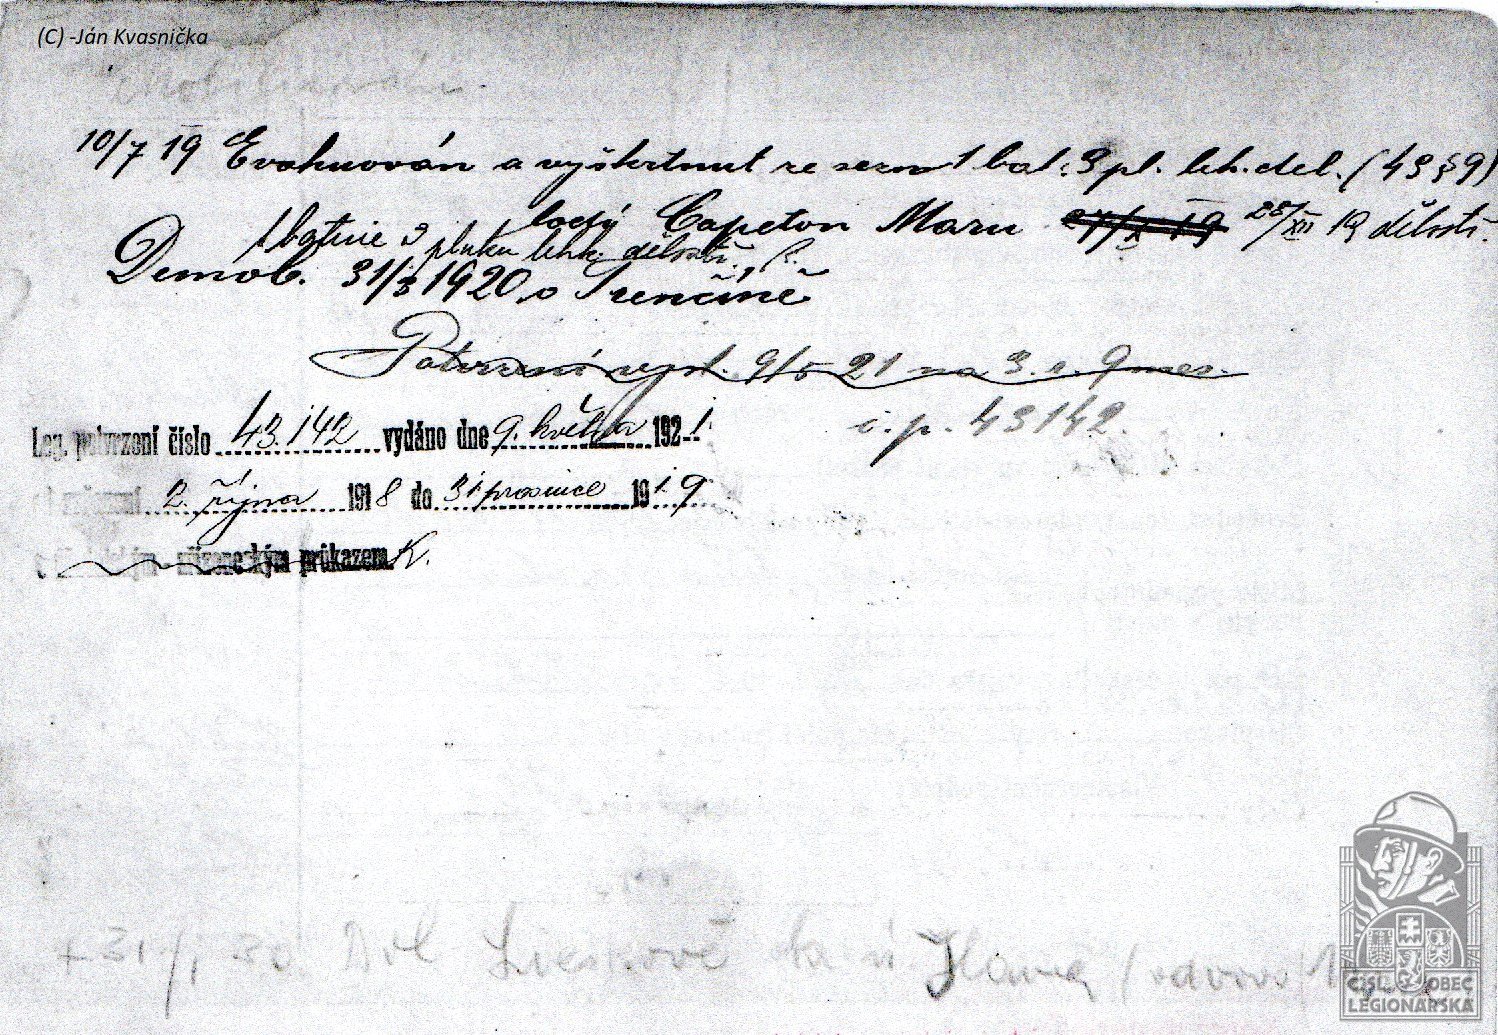 (C) -Ján Kvasnička
10/7 19 Evakuován a vyškrtnut ze sezn 1 bat. 3 pl. leh. děl. (43 § 9)
lodý Capeton Maru 28/XII 19 dělostř.
1 baterie 3 pluku lehk. dělostř.
Demob. 31/3 1920 v Trenčíně
Potvrzení vyd. 9/5 21 na 3 r. 9 mes.
č. p. 43142.
Leg. potvrzení číslo 43.142 vydáno dne 9. května 1921
2. října 1918 do 31 prosince 1919
průkazem K.
+ 31/1 30 Dol. Lieskové Ilava
ČSL. OBEC
LEGIONÁŘSKÁ